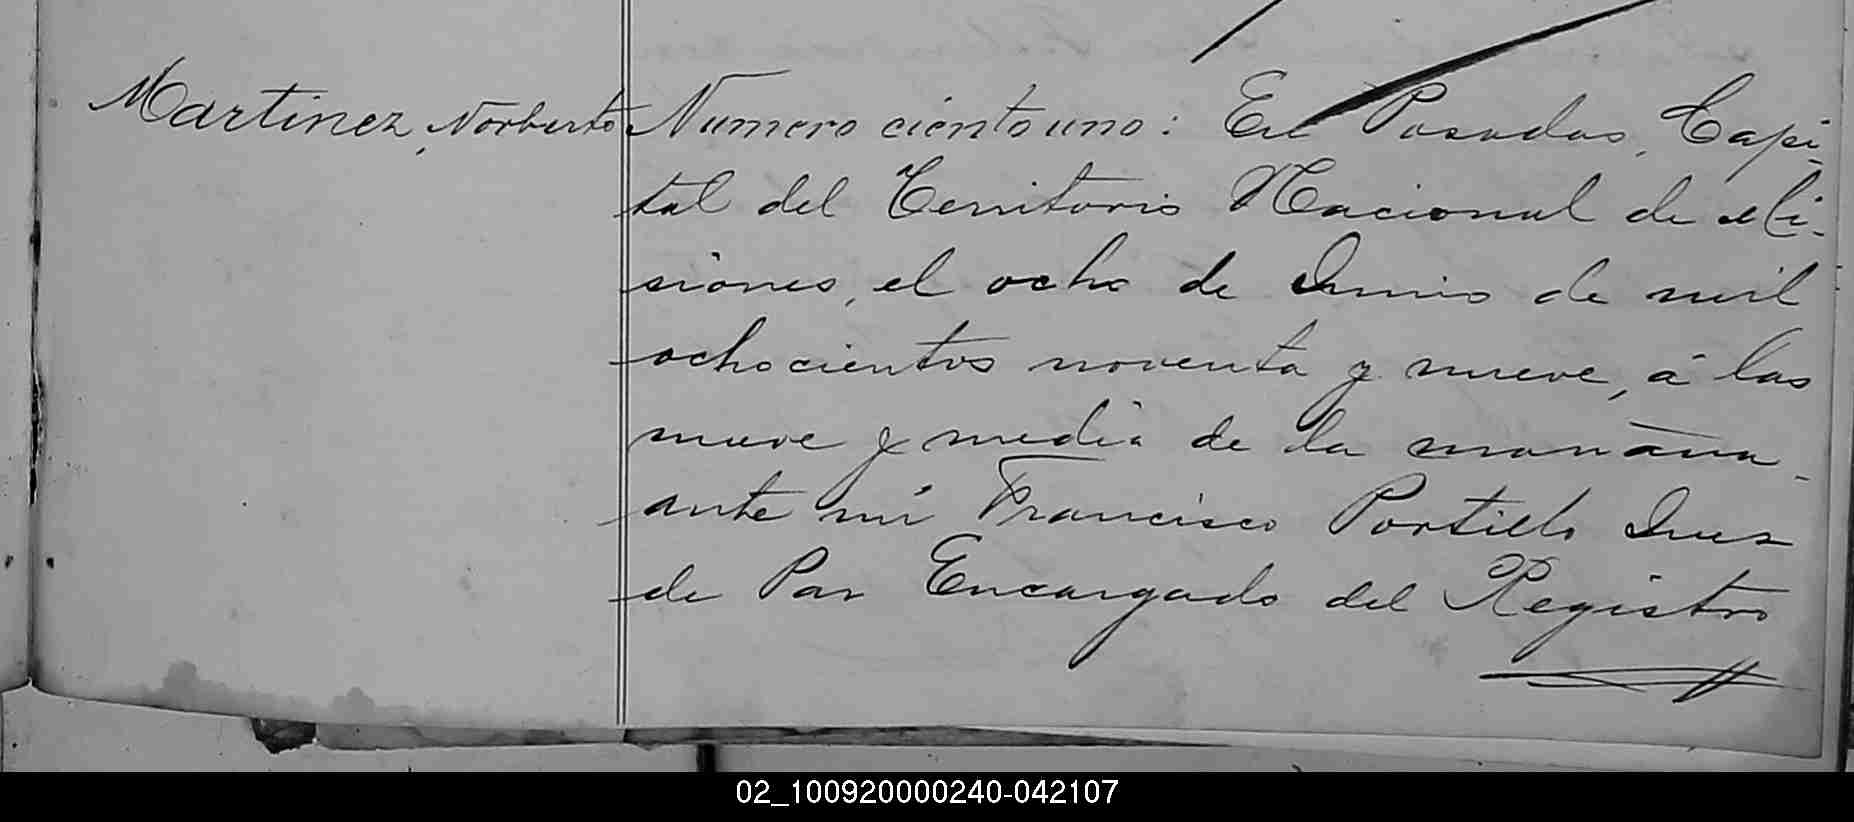 Martinez, Norberto
Numero ciento uno: En Posadas, Capi-
tal del Territorio Nacional de Mi-
siones, el ocho de Junio de mil
ochocientos noventa y nueve, á las
nueve y media de la mañana
ante mi Francisco Portillo Juez
de Paz Encargado del Registro
02_100920000240-042107